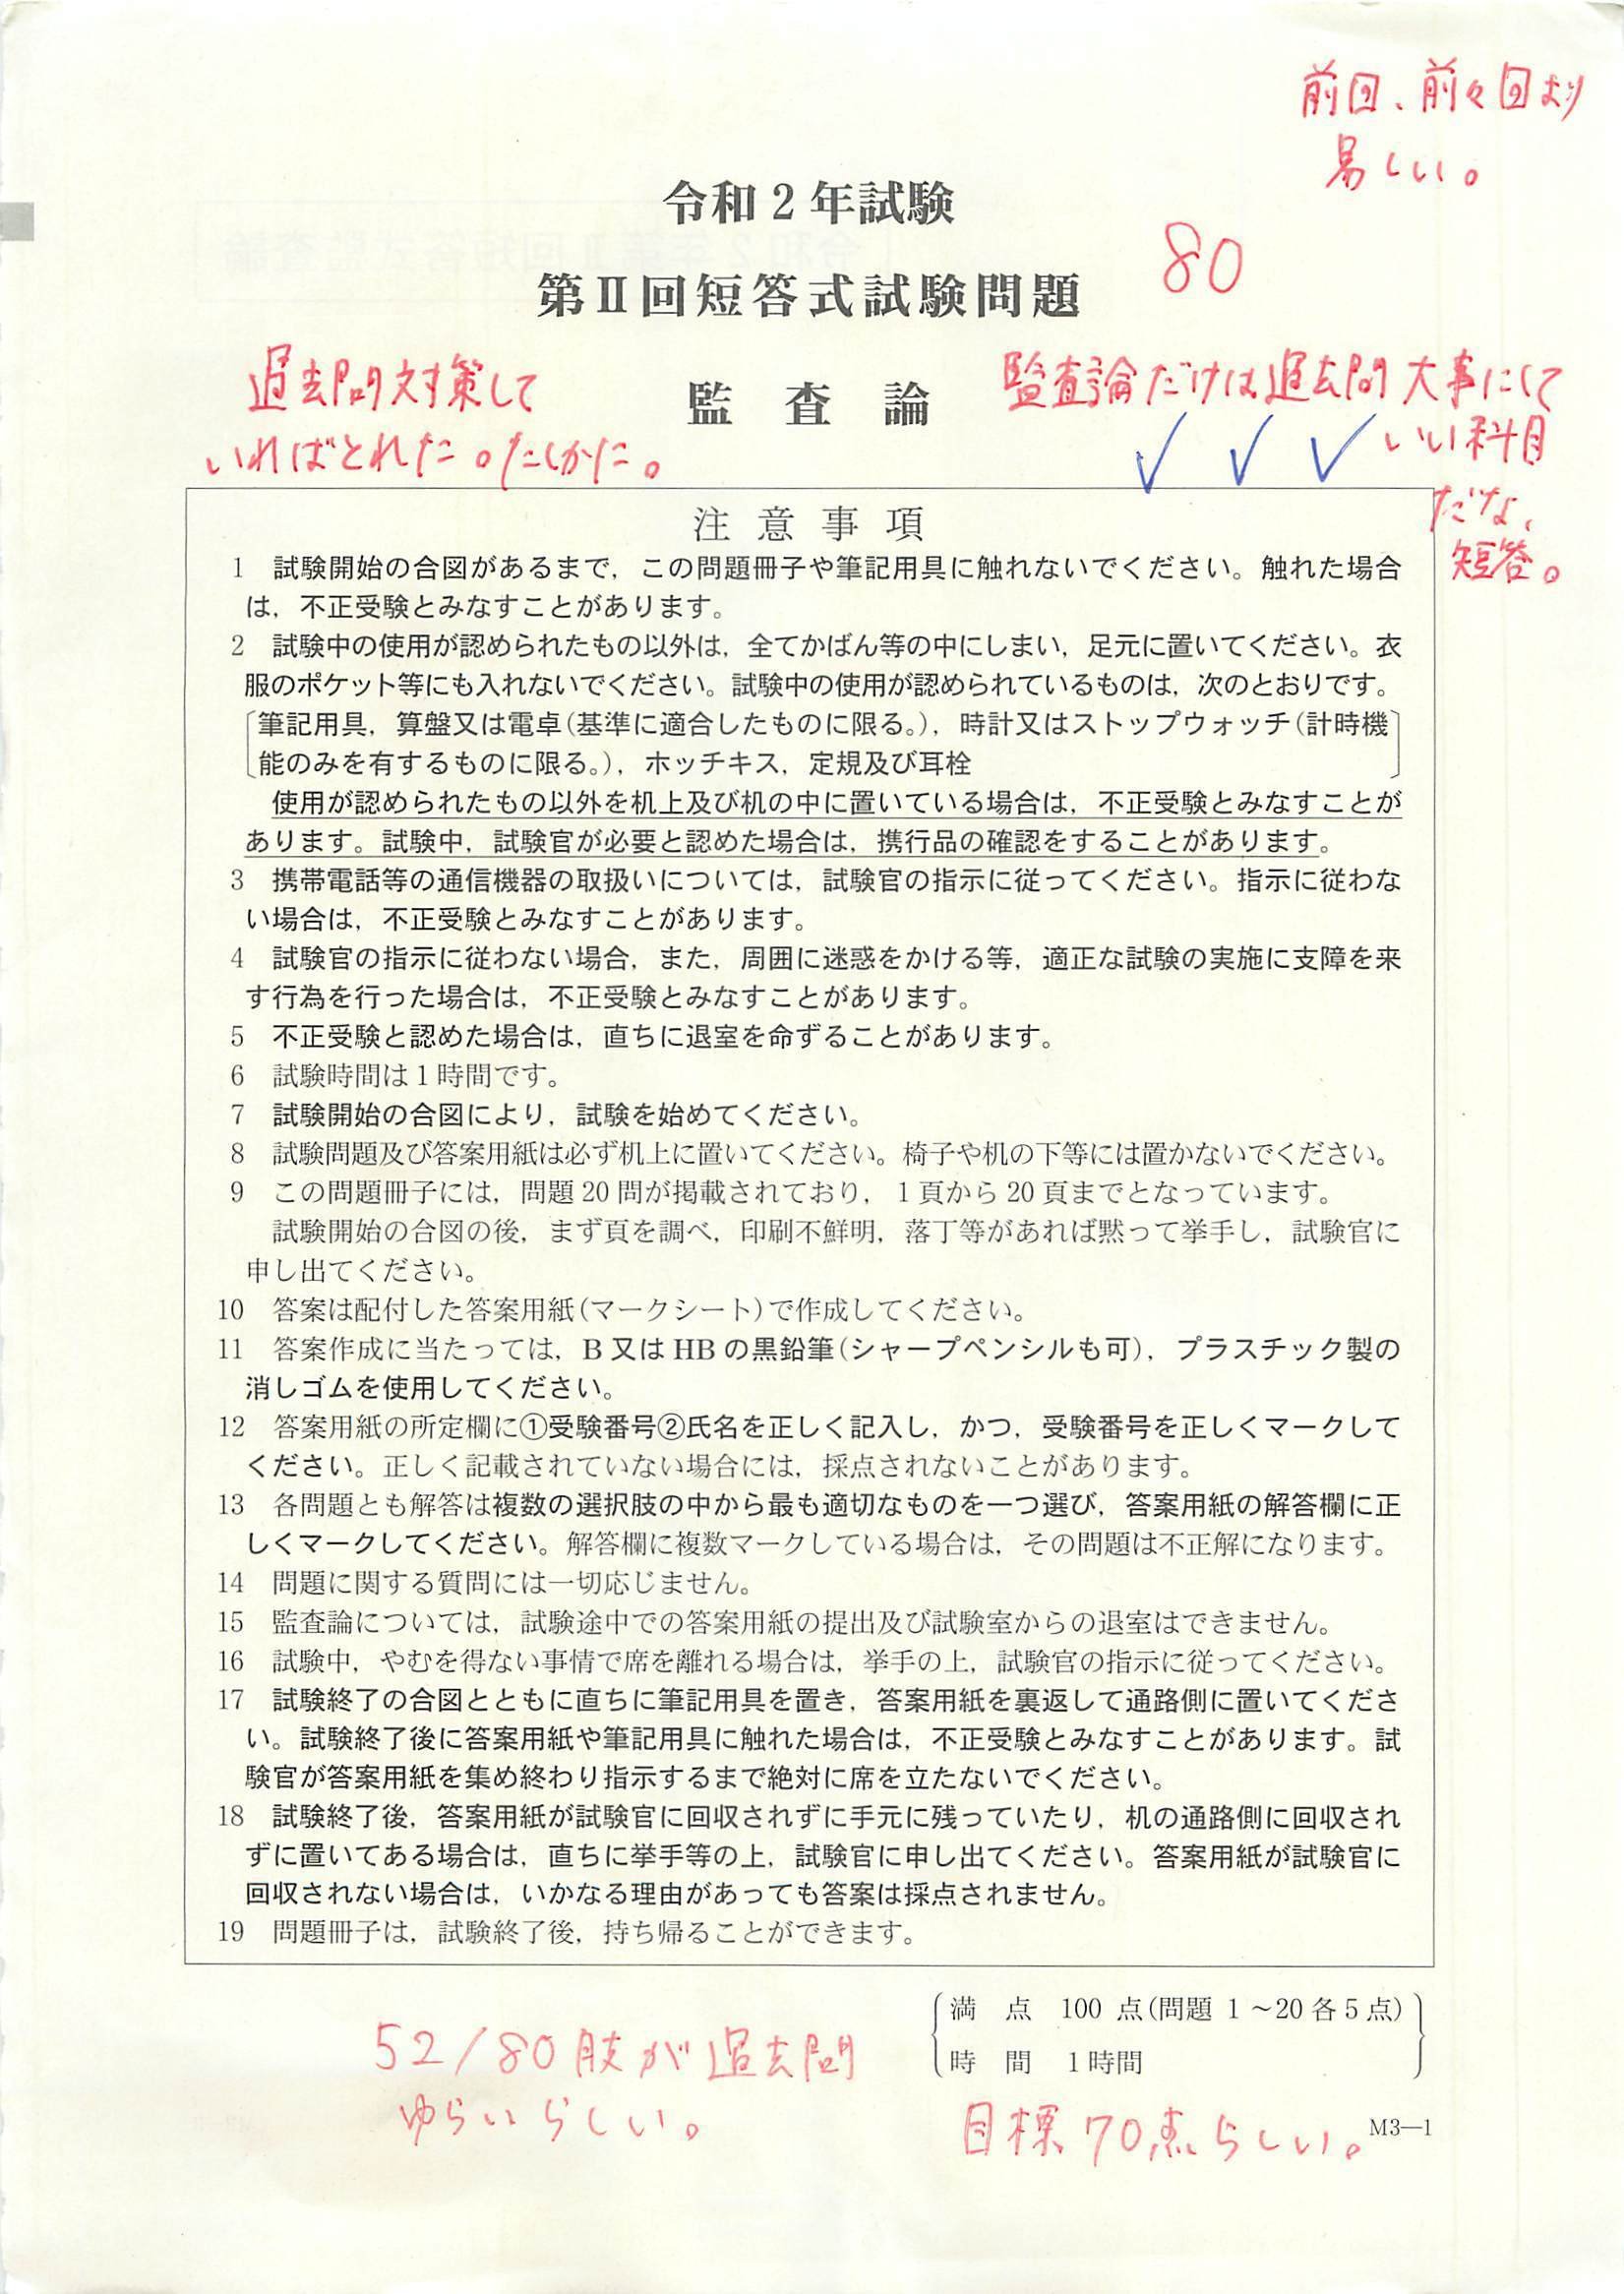 前回、前々回より
易しい。
令和2年試験
80
第Ⅱ回短答式試験問題
過去問対策して
いればとれた。たしかに。
監査論
監査論だけは過去問大事にして
いい科目
だな、
短答。
注意事項
1 試験開始の合図があるまで，この問題冊子や筆記用具に触れないでください。触れた場合
は，不正受験とみなすことがあります。
2 試験中の使用が認められたもの以外は，全てかばん等の中にしまい，足元に置いてください。衣
服のポケット等にも入れないでください。試験中の使用が認められているものは，次のとおりです。
筆記用具，算盤又は電卓(基準に適合したものに限る。)，時計又はストップウォッチ(計時機
能のみを有するものに限る。)，ホッチキス，定規及び耳栓
使用が認められたもの以外を机上及び机の中に置いている場合は，不正受験とみなすことが
あります。試験中，試験官が必要と認めた場合は，携行品の確認をすることがあります。
3 携帯電話等の通信機器の取扱いについては，試験官の指示に従ってください。指示に従わな
い場合は，不正受験とみなすことがあります。
4 試験官の指示に従わない場合，また，周囲に迷惑をかける等，適正な試験の実施に支障を来
す行為を行った場合は，不正受験とみなすことがあります。
5 不正受験と認めた場合は，直ちに退室を命ずることがあります。
6 試験時間は1時間です。
7 試験開始の合図により，試験を始めてください。
8 試験問題及び答案用紙は必ず机上に置いてください。椅子や机の下等には置かないでください。
9 この問題冊子には，問題20問が掲載されており，1頁から20頁までとなっています。
試験開始の合図の後，まず頁を調べ，印刷不鮮明，落丁等があれば黙って挙手し，試験官に
申し出てください。
10 答案は配付した答案用紙(マークシート)で作成してください。
11 答案作成に当たっては，B又はHBの黒鉛筆(シャープペンシルも可)，プラスチック製の
消しゴムを使用してください。
12 答案用紙の所定欄に①受験番号②氏名を正しく記入し，かつ，受験番号を正しくマークして
ください。正しく記載されていない場合には，採点されないことがあります。
13 各問題とも解答は複数の選択肢の中から最も適切なものを一つ選び，答案用紙の解答欄に正
しくマークしてください。解答欄に複数マークしている場合は，その問題は不正解になります。
14 問題に関する質問には一切応じません。
15 監査論については，試験途中での答案用紙の提出及び試験室からの退室はできません。
16 試験中，やむを得ない事情で席を離れる場合は，挙手の上，試験官の指示に従ってください。
17 試験終了の合図とともに直ちに筆記用具を置き，答案用紙を裏返して通路側に置いてくださ
い。試験終了後に答案用紙や筆記用具に触れた場合は，不正受験とみなすことがあります。試
験官が答案用紙を集め終わり指示するまで絶対に席を立たないでください。
18 試験終了後，答案用紙が試験官に回収されずに手元に残っていたり，机の通路側に回収され
ずに置いてある場合は，直ちに挙手等の上，試験官に申し出てください。答案用紙が試験官に
回収されない場合は，いかなる理由があっても答案は採点されません。
19 問題冊子は，試験終了後，持ち帰ることができます。
満点 100点(問題1～20各5点)
時間 1時間
52/80肢が過去問
ゆらいらしい。
目標70点らしい。
M3―1